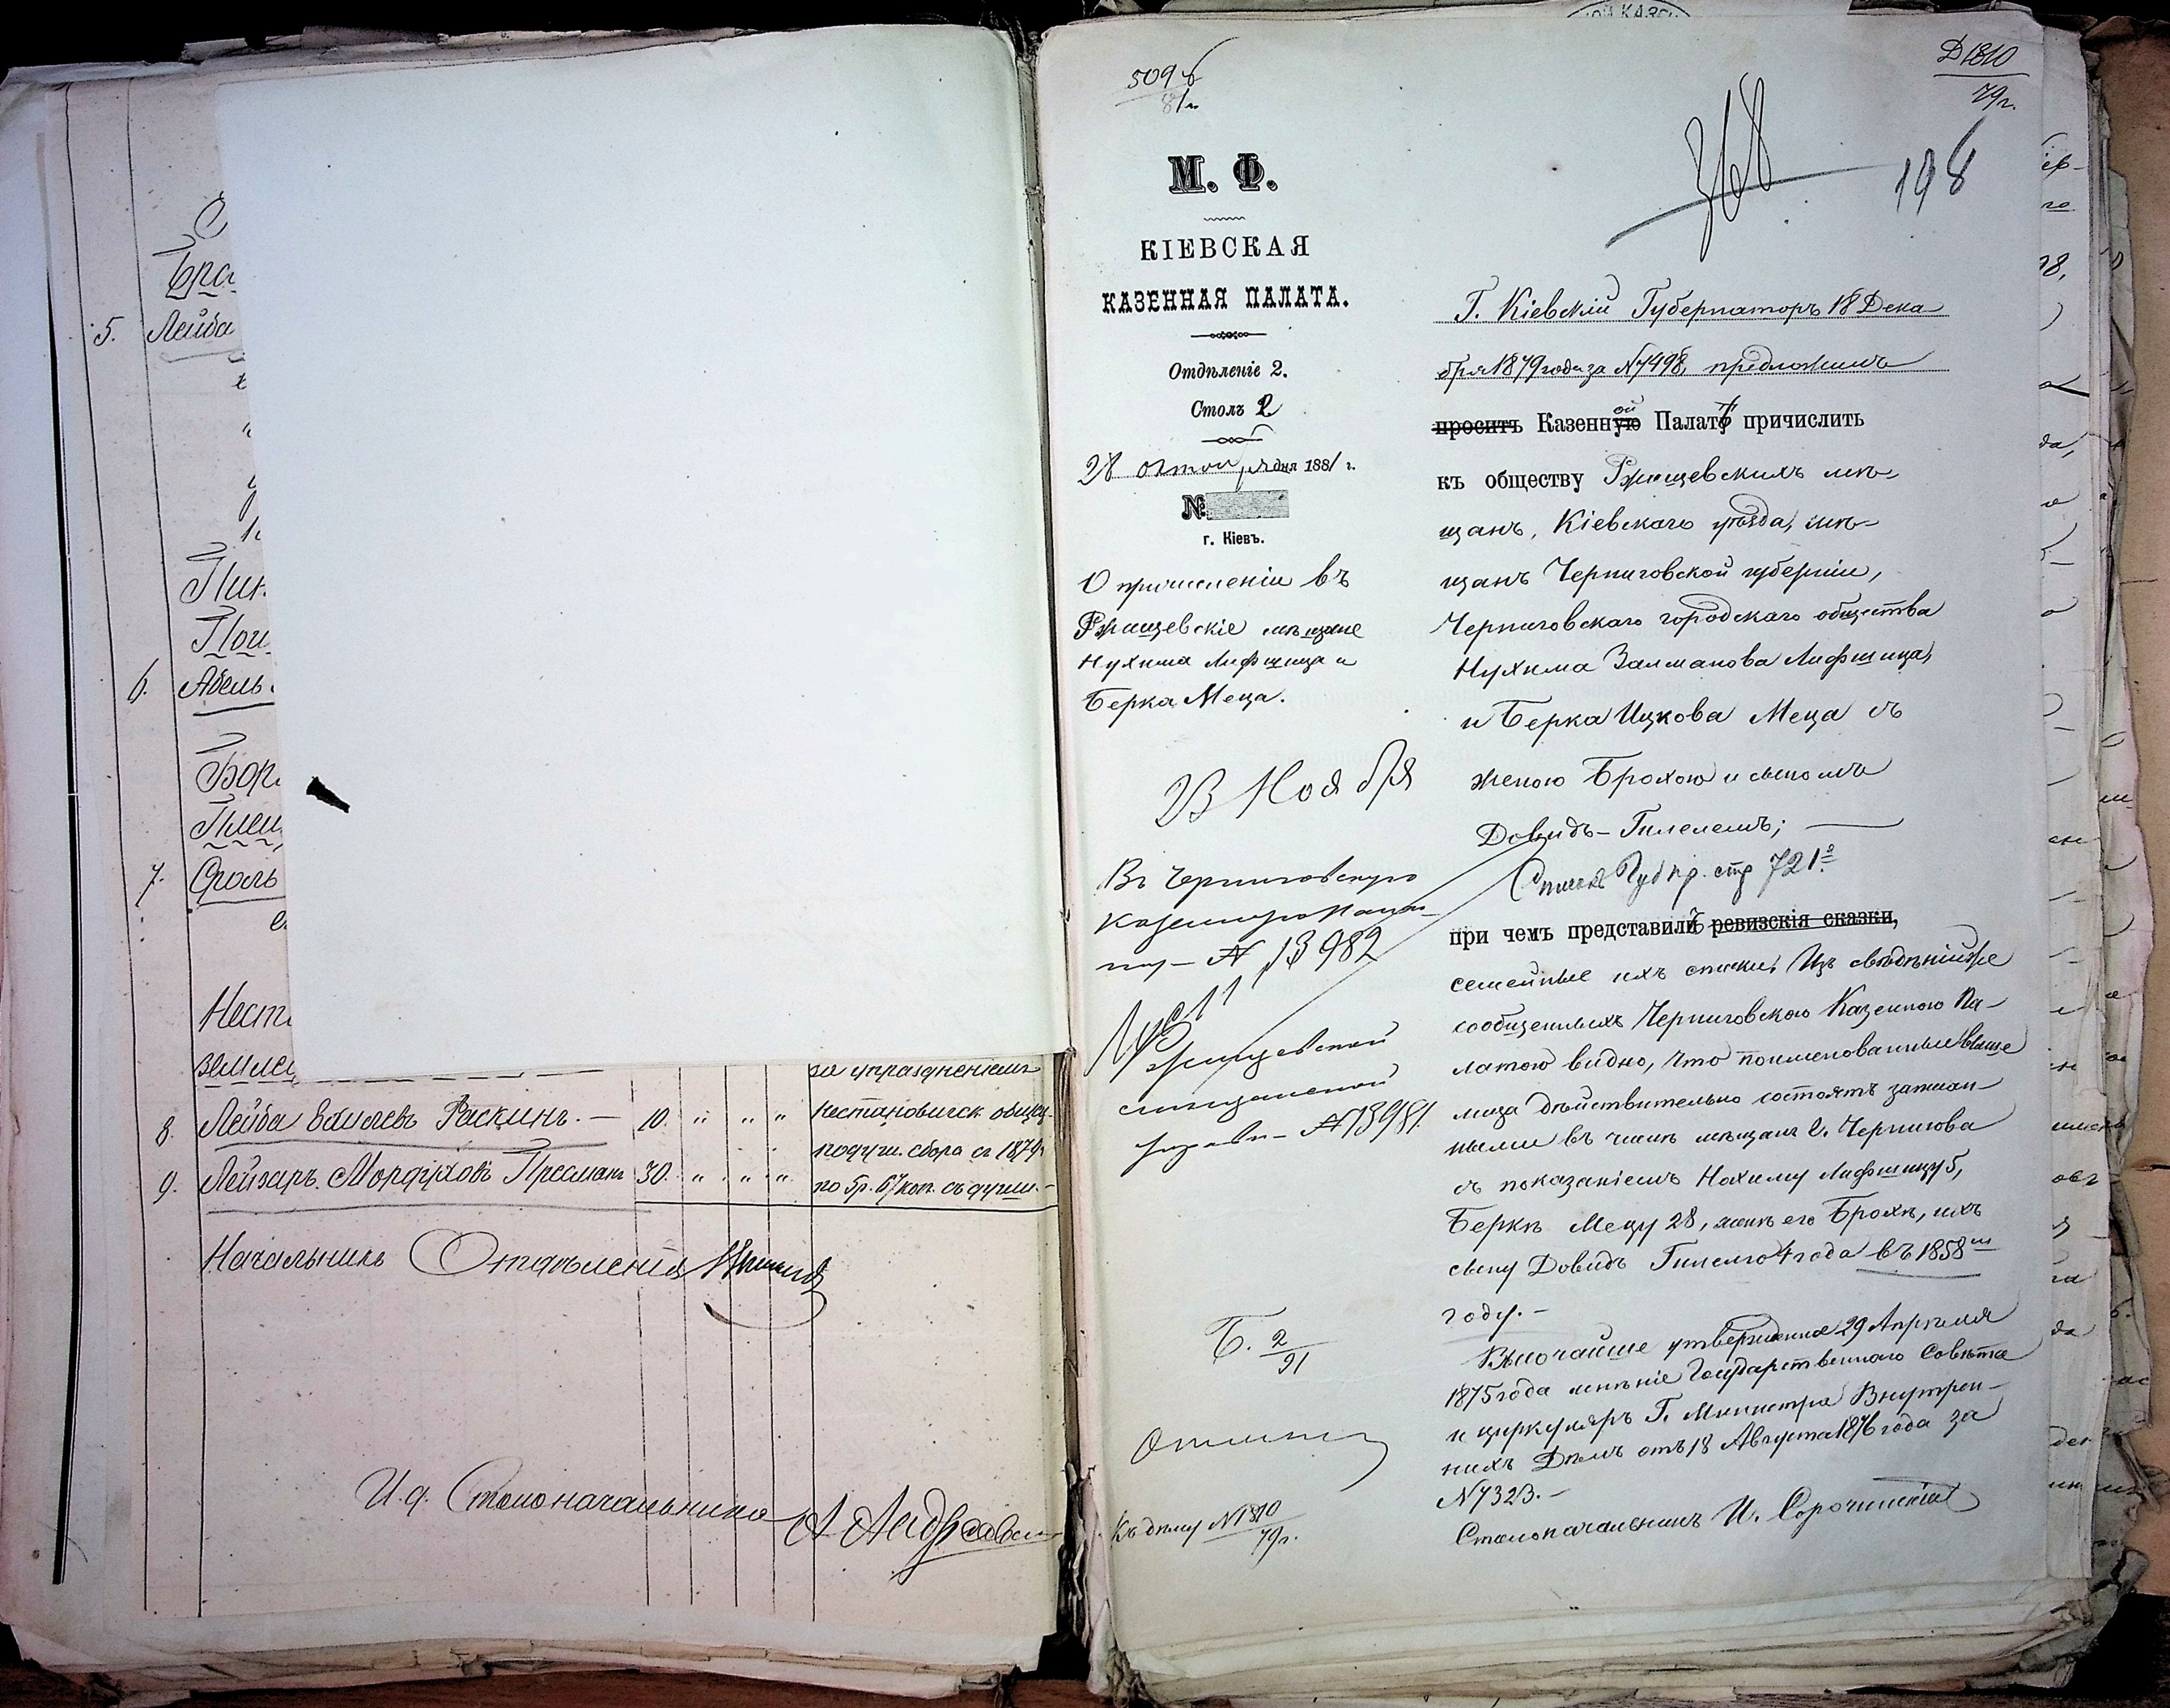 5. Лейба
6. Абель
7. Сроль
за упраздненіемъ
8. Лейба Раскинъ. — 10. " " "
подуш. сбора съ 1879
9. Лейзаръ Мордуховъ 30. " " "
по 5р. 67 коп. съ души.
Начальникъ Отдѣленія
И. д. Столоначальника
509
81г.
М. Ф.
КІЕВСКАЯ
КАЗЕННАЯ ПАЛАТА.
Отдѣленіе 2.
Столъ 2
28 октября дня 1881 г.
№
г. Кіевъ.
О причисленіи въ
Ржищевскіе мѣщане
Нухима Лифшица и
Берка Меца.
23 Ноября
Въ Черниговскую
Казенную Пала-
ту — № 13982
Ржищевской
мѣщанской
управѣ — № 13981.
Б. 2/91
Къ дѣлу № 1810
79г.
Д 1810
79г.
368
198
Г. Кіевскій Губернаторъ 18 Дека
бря 1879 года за № 7498, предложилъ
проситъ Казенной Палатѣ причислить
къ обществу Ржищевскихъ мѣ-
щанъ, Кіевскаго уѣзда, мѣ-
щанъ Черниговской губерніи,
Черниговскаго городскаго общества
Нухима Залманова Лифшица,
и Берка Ицкова Меца съ
женою Брохою и сыномъ
Довидъ-Гилелемъ;
Списокъ Губ пр. стр 721.
при чемъ представилъ ревизскія сказки,
семейные ихъ списки. Изъ свѣдѣній же
сообщенныхъ Черниговскою Казенною Па-
латою видно, что поименованныя выше
лица дѣйствительно состоятъ записан-
ными въ числѣ мѣщанъ г. Чернигова
съ показаніемъ Нохиму Лифшицу 5,
Беркѣ Мецу 28, женѣ его Брохѣ, ихъ
сыну Довидъ Гилелю 4 года въ 1858 м
году. —
Высочайше утвержденное 29 Апрѣля
1875 года мнѣніе Государственнаго Совѣта
и циркуляръ Г. Министра Внутрен-
нихъ Дѣлъ отъ 18 Августа 1876 года за
№ 7323. —
Столоначальникъ И. Сорочинскій